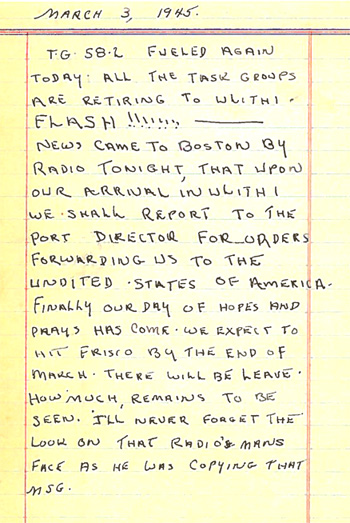 MARCH 3, 1945.
T.G. 58.2 FUELED AGAIN
TODAY: ALL THE TASK GROUPS
ARE RETIRING TO ULITHI.
FLASH !!!!!!!, ———
NEWS CAME TO BOSTON BY
RADIO TONIGHT, THAT UPON
OUR ARRIVAL IN ULITHI
WE SHALL REPORT TO THE
PORT DIRECTOR FOR ORDERS
FORWARDING US TO THE
UNDITED STATES OF AMERICA.
FINALLY OUR DAY OF HOPES AND
PRAYS HAS COME. WE EXPECT TO
HIT FRISCO BY THE END OF
MARCH. THERE WILL BE LEAVE.
HOW MUCH, REMAINS TO BE
SEEN. I'LL NEVER FORGET THE
LOOK ON THAT RADIO'S MANS
FACE AS HE WAS COPYING THAT
MSG.